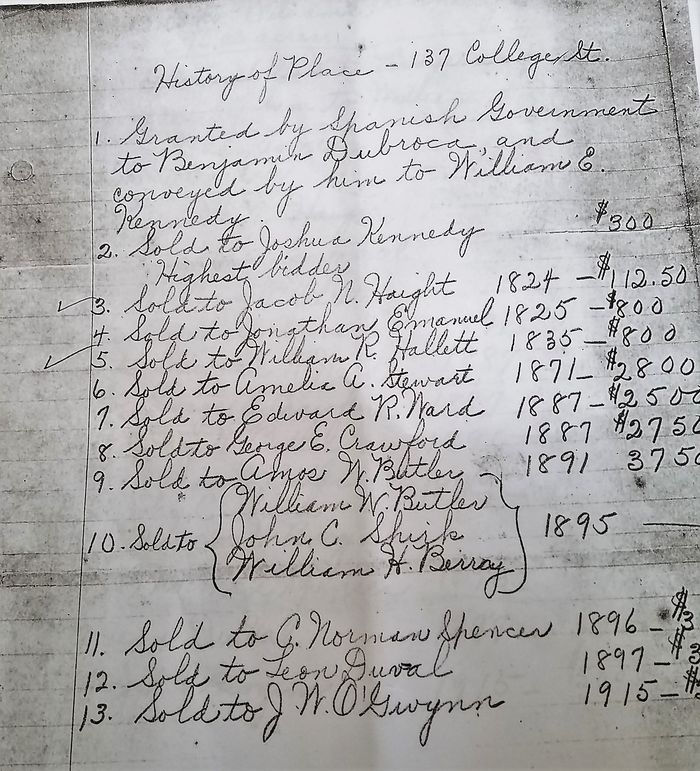 History of Place - 137 College St.
1. Granted by Spanish Government
to Benjamin Dubroca, and
conveyed by him to William E.
Kennedy.
2. Sold to Joshua Kennedy $300
Highest bidder
3. Sold to Jacob N. Haight 1824 - $112.50
4. Sold to Jonathan Emanuel 1825 - $800
5. Sold to William R. Hallett 1835 - $800
6. Sold to Amelia A. Stewart 1871 - $2800
7. Sold to Edward R. Ward 1887 - $2500
8. Sold to George E. Crawford 1887 $2750
9. Sold to Amos W. Butler 1891 3750
William W. Butler
10. Sold to John C. Shirk 1895 -
William H. Berray
11. Sold to G. Norman Spencer 1896 - $3
12. Sold to Leon Duval 1897 - $3
13. Sold to J. W. O'Gwynn 1915 - $